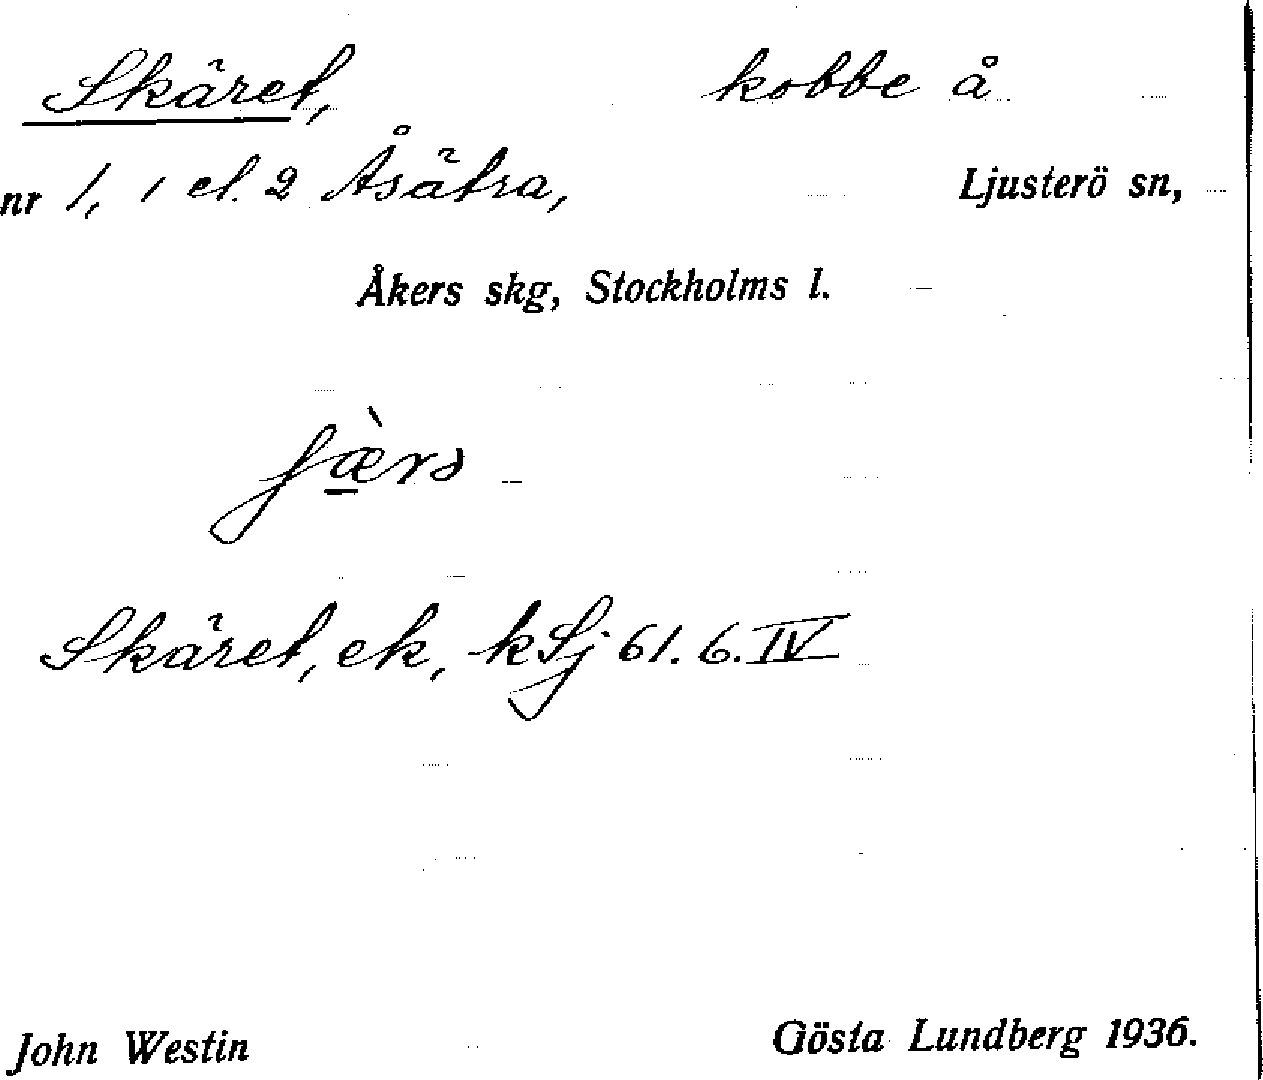 Skäret, kobbe å
nr 1, 1 el. 2 Åsätra, Ljusterö sn,
Åkers skg, Stockholms l.
ʃæ̀rs
Skäret, ek, kSj 61.6.IV
John Westin Gösta Lundberg 1936.